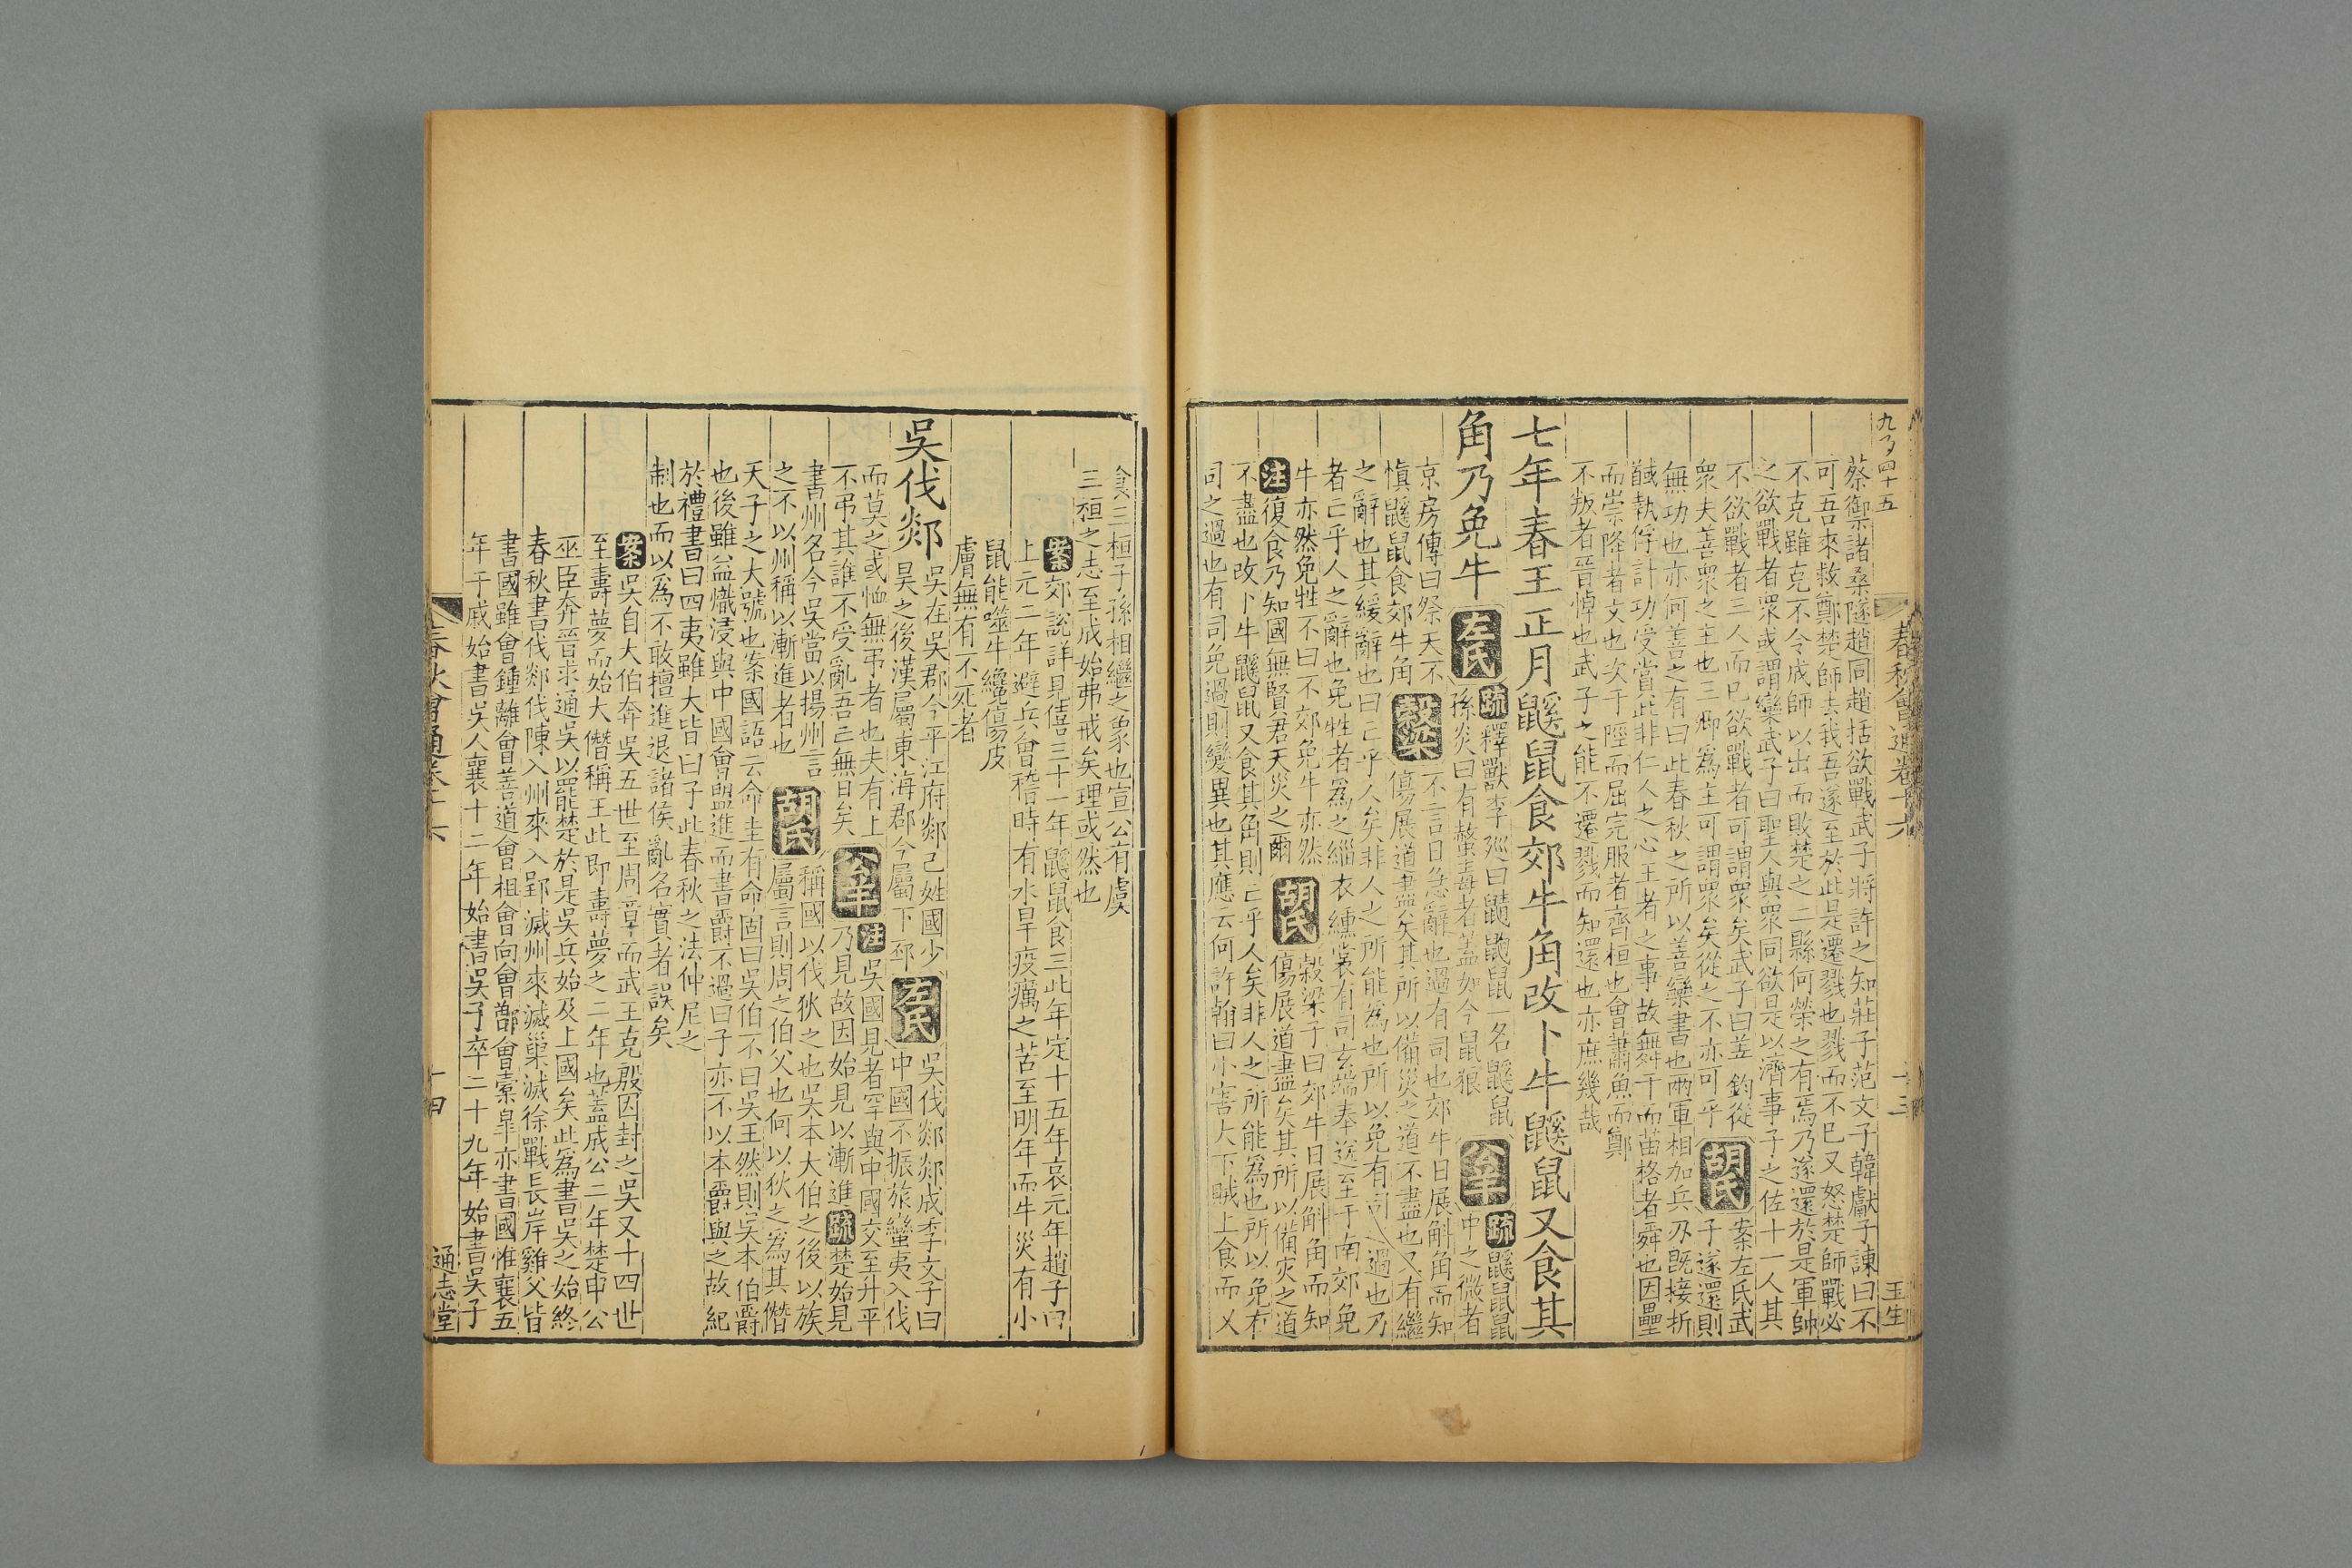 九百四十五
春秋會通卷十六
十三
玉生
蔡御諸桑隧趙同趙括欲戰武子將許之知莊子范文子韓獻子諫曰不
可吾來救鄭楚師去我吾遂至於此是遷戮也戮而不已又怒楚師戰必
不克雖克不令成師以出而敗楚之二縣何榮之有焉乃遂還於是軍帥
之欲戰者眾或謂欒武子曰聖人與眾同欲是以濟事子之佐十一人其
不欲戰者三人而已欲戰者可謂眾矣武子曰善鈞從
眾夫善眾之主也三卿為主可謂眾矣從之不亦可乎 胡氏 案左氏武
子遂還則
無功也亦何善之有曰此春秋之所以善欒書也兩軍相加兵刃既接折
馘執俘計功受賞此非仁人之心王者之事故舞干而苗格者舜也因壘
而崇降者文也次于陘而屈完服者齊桓也會蕭魚而鄭
不叛者晉悼也武子之能不遷戮而知還也亦庶幾哉
七年春王正月鼷鼠食郊牛角改卜牛鼷鼠又食其
角乃免牛 左氏 疏 釋獸李巡曰鼱鼩鼠一名鼷鼠
孫炎曰有螫毒者蓋如今鼠狼 公羊 疏 鼷鼠鼠
中之微者
京房傳曰祭天不
慎鼷鼠食郊牛角 穀梁 不言日急辭也過有司也郊牛日展斛角而知
傷展道盡矣其所以備災之道不盡也又有繼
之辭也其緩辭也曰亡乎人矣非人之所能為也所以免有司之過也乃
者亡乎人之辭也免牲者為之緇衣纁裳有司玄端奉送至于南郊免
牛亦然免牲不曰不郊免牛亦然
注 復食乃知國無賢君天災之爾 胡氏 穀梁子曰郊牛日展斛角而知
傷展道盡矣其所以備災之道
不盡也改卜牛鼷鼠又食其角則亡乎人矣非人之所能為也所以免有
司之過也有司免過則變異也其應云何許翰曰小害大下賊上食而又
食三桓子孫相繼之象也宣公有虞
三桓之志至成始弗戒矣理或然也
案 郊說詳見僖三十一年鼷鼠食三此年定十五年哀元年趙子曰
上元二年避兵會稽時有水旱疫癘之苦至明年而牛災有小
鼠能噬牛纔傷皮
膚無有不死者
吳伐郯 吳在吳郡今平江府郯己姓國少
昊之後漢屬東海郡今屬下邳 左氏 吳伐郯郯成季文子曰
中國不振旅蠻夷入伐
而莫之或恤無弔者也夫有上
不弔其誰不受亂吾亡無日矣 公羊 注 吳國見者罕與中國交至升平
乃見故因始見以漸進 疏 楚始見
書州名今吳當以揚州言
之不以州稱以漸進者也 胡氏 稱國以伐狄之也吳本大伯之後以族
屬言則周之伯父也何以狄之為其僭
天子之大號也案國語云命圭有命固曰吳伯不曰吳王然則吳本伯爵
也後雖益熾浸與中國會盟進而書爵不過曰子亦不以本爵與之故紀
於禮書曰四夷雖大皆曰子此春秋之法仲尼之
制也而以為不敢擅進退諸侯亂名實者誤矣
案 吳自大伯奔吳五世至周章而武王克殷因封之吳又十四世
至壽夢而始大僭稱王此即壽夢之二年也蓋成公二年楚申公
巫臣奔晉求通吳以罷楚於是吳兵始及上國矣此為書吳之始終
春秋書伐郯伐陳入州來入郢滅州來滅巢滅徐戰長岸雞父皆
書國雖會鍾離會善道會柤會向會鄫會橐皋亦書國惟襄五
年于戚始書吳人襄十二年始書吳子卒二十九年始書吳子
春秋會通卷十六
十四
通志堂